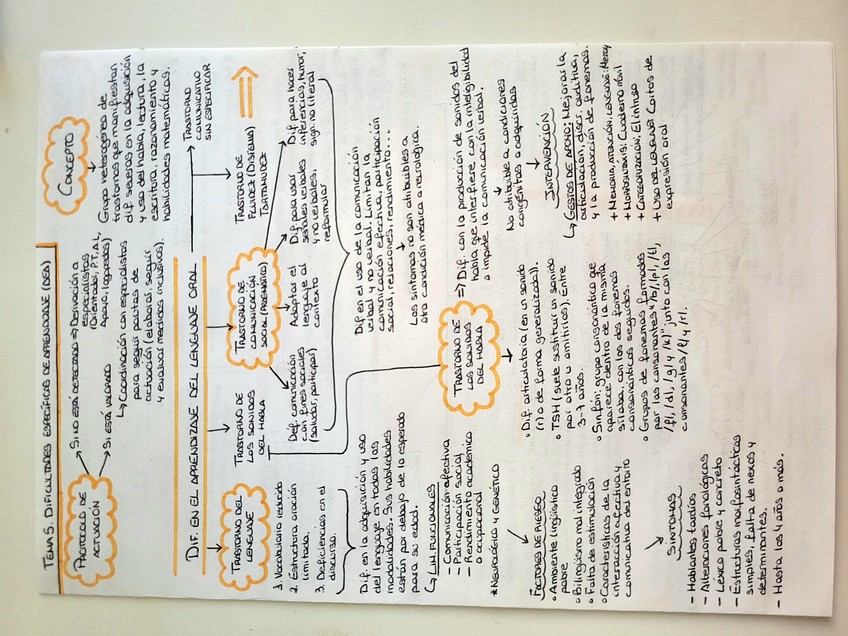 TEMA 5. DIFICULTADES ESPECÍFICAS DE APRENDIZAJE (DEA)
PROTOCOLO DE
ACTUACIÓN
Si NO ESTÁ DETECTADO ⇒ Derivación a
especialistas
(Orientador, PT, AL,
Apoyo, logopedas).
Si, ESTÁ VALORADO
↳ Coordinación con especialistas
para seguir pautas de
actuación (elaborar, seguir
y evaluar medidas inclusivas).
CONCEPTO
Grupo heterogéneo de
trastornos que manifiestan
dif. severas en la adquisición
y uso del habla, lectura, la
escritura, razonamiento y
habilidades matemáticas.
DIF. EN EL APRENDIZAJE DEL LENGUAJE ORAL
TRASTORNO DEL
LENGUAJE
TRASTORNO DE
LOS SONIDOS
DEL HABLA
TRASTORNO DE
COMUNICACIÓN
SOCIAL (PRAGMÁTICO)
TRASTORNO DE
FLUIDEZ (DISFEMIA)
TARTAMUDEZ
TRASTORNO
COMUNICATIVO
SIN ESPECIFICAR
1. Vocabulario reducido
2. Estructura oración
limitada.
3. Deficiencias en el
discurso.
Dif. en la adquisición y uso
del lenguaje en todas las
modalidades. Sus habilidades
están por debajo de lo esperado
para su edad.
↳ LIM. FUNCIONALES
- Comunicación efectiva
- Participación social
- Rendimiento académico
o ocupacional
* NEUROLÓGICO Y GENÉTICO
FACTORES DE RIESGO
• Ambiente lingüístico
pobre
• Bilingüismo mal integrado
• Falta de estimulación
• Características de la
interacción afectiva y
comunicativa del entorno
SÍNTOMAS
- Hablantes tardíos
- Alteraciones fonológicas
- Léxico pobre y concreto
- Estructuras morfosintácticas
simples, falta de nexos y
determinantes.
- Hasta los 4 años o más.
Def. comunicación
con fines sociales
(saludar, participar)
Adaptar el
lenguaje al
contexto
Dif para usar
señales verbales
y no verbales,
reformular
Dif. para hacer
inferencias, humor,
sign. no literal
Dif en el uso de la comunicación
verbal y no verbal. Limitan la
comunicación efectiva, participación
social, relaciones, rendimiento...
Los síntomas no son atribuibles a
otra condición médica o neurológica.
TRASTORNO DE
LOS SONIDOS
DEL HABLA
⇒ Dif. con la producción de sonidos del
habla que interfiere con la inteligibilidad
o impide la comunicación verbal.
No atribuible a condiciones
congénitas o adquiridas
• Dif. articulatoria (en un sonido
(r) o de forma generalizada).
• TSH (suele sustituir un sonido
por otro u omitirlos). Entre
3-7 años.
• Sinfón: grupo consonántico que
aparece dentro de la misma
sílaba. con los dos fonemas
consonánticos seguidos.
• Grupos de fonemas formados
por las consonantes "/b/, /p/, /t/,
/f/, /d/, /g/ y /k/" junto con las
consonantes /l/ y /r/.
INTERVENCIÓN
↳ GESTOS DE APOYO: Mejorar la
articulación, discr. auditiva,
y la producción de fonemas.
+ MEMORIA, ATENCIÓN, LENGUAJE: Memory
+ MORFOSINTAXIS: Cuaderno móvil
+ CATEGORIZACIÓN: El intruso
+ USO DEL LENGUAJE: Cartas de
expresión oral